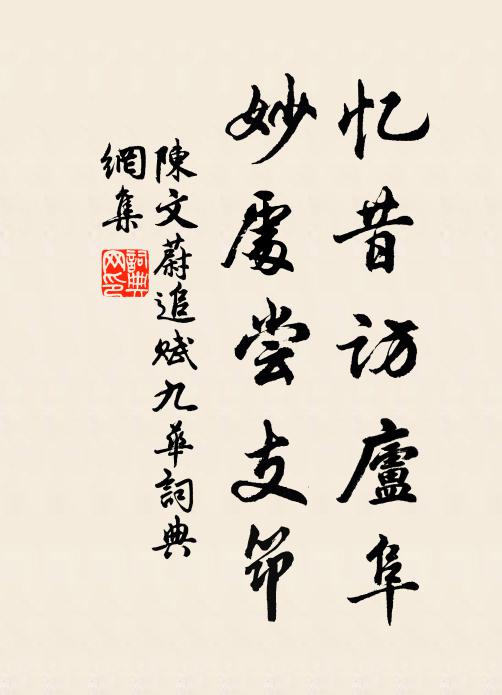 忆昔访廬阜
妙處尝支筇
陳文蔚追赋九華詞典
網集
詞典
网印